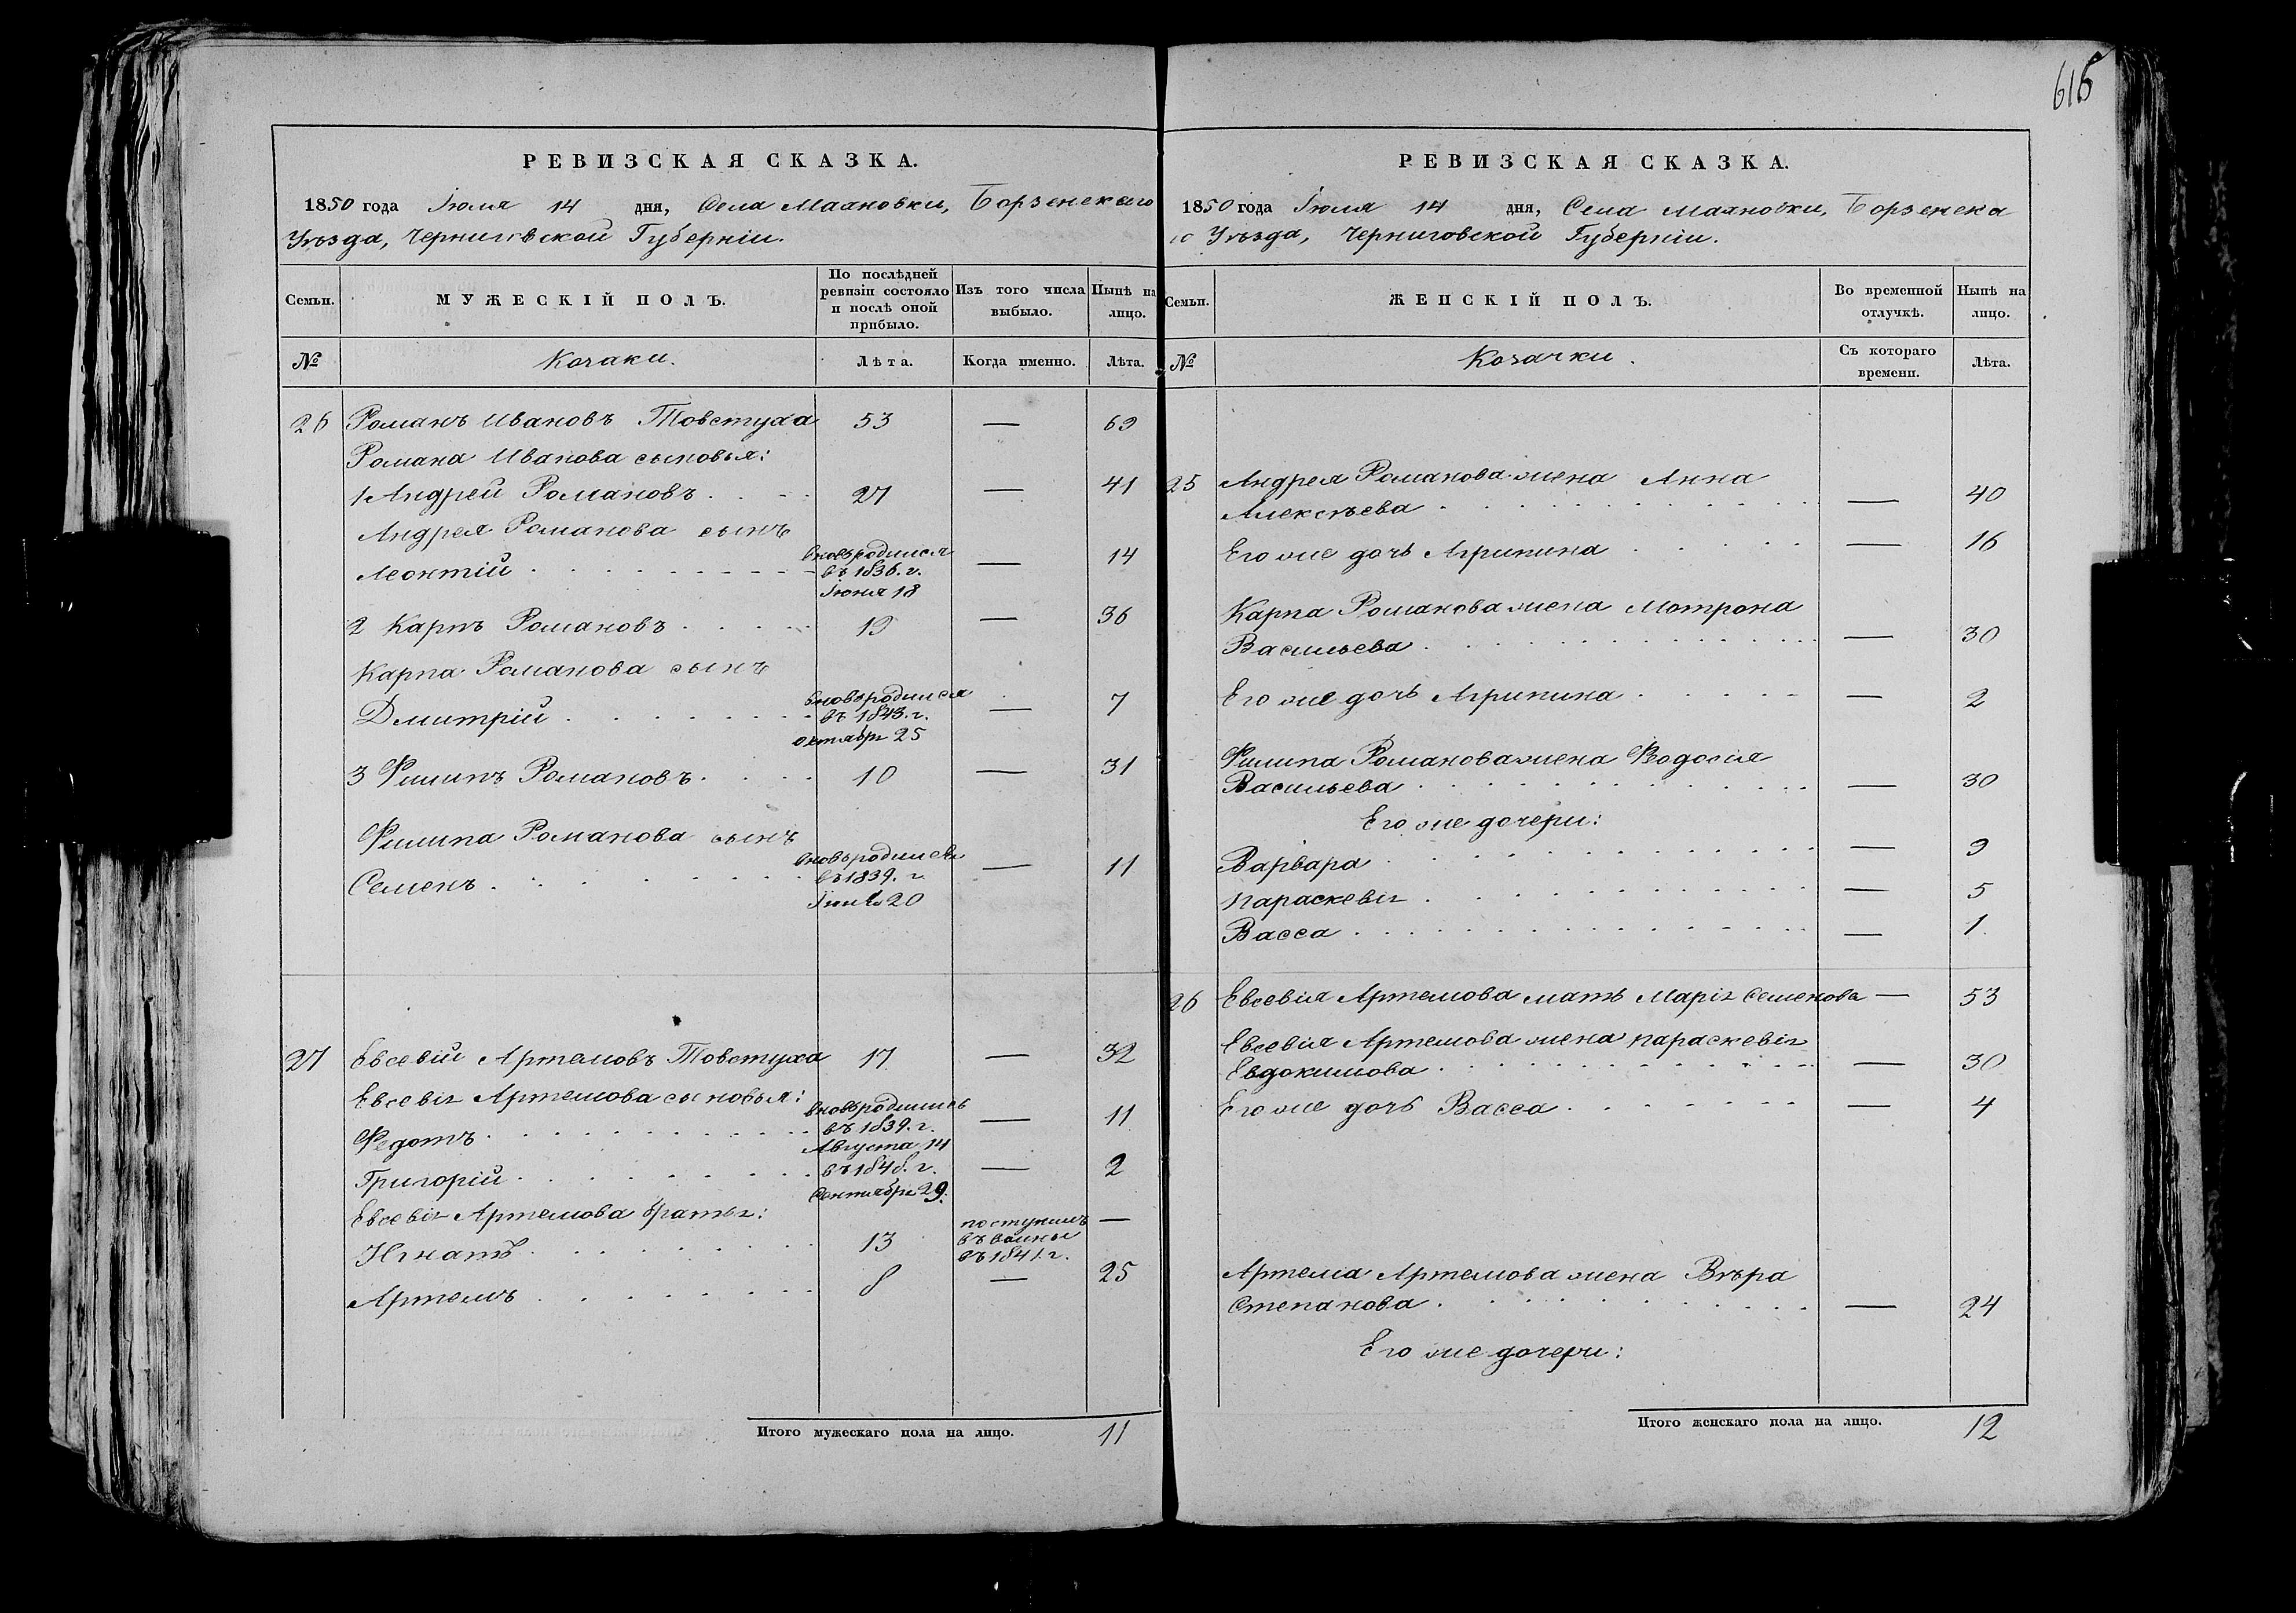 615
РЕВИЗСКАЯ СКАЗКА.
1850 года Іюля 14 дня, Села Маяновки, Борзенскаго
Уѣзда, Черниговской Губерніи.
Семьи.
МУЖЕСКІЙ ПОЛЪ.
По послѣдней ревизіи состояло и послѣ оной прибыло.
Изъ того числа выбыло.
Нынѣ на лицо.
№
Козаки.
Лѣта.
Когда именно.
Лѣта.
26 Романъ Ивановъ Товстуха 53 — 69
Романа Иванова сыновья:
1 Андрей Романовъ . . . 27 — 41
Андрея Романова сынъ
Леонтій . . . . . . . . вновьродился въ 1836. г. Іюня 18 — 14
2 Карпъ Романовъ . . . . . 19 — 36
Карпа Романова сынъ
Дмитрій . . . . . . . вновьродился въ 1843. г. октября 25 — 7
3 Филипъ Романовъ . . . . 10 — 31
Филипа Романова сынъ
Семенъ . . . . . . . вновьродился въ 1839. г. 20 — 11
27 Евсевій Артемовъ Товстуха 17 — 32
Евсевія Артемова сыновья:
Федотъ . . . . . . . . . вновьродились въ 1839. г. Августа 14 — 11
Григорій . . . . . . . . въ 1848. г. Сентября 29. — 2
Евсевія Артемова братья:
Игнатъ . . . . . . . . 13 поступилъ въ воины въ 1841. г. —
Артемъ . . . . . . . . 8 — 25
Итого мужескаго пола на лицо. 11
РЕВИЗСКАЯ СКАЗКА.
1850 года Іюля 14 дня, Села Маяновки, Борзенска
го Уѣзда, Черниговской Губерніи.
Семьи.
ЖЕНСКІЙ ПОЛЪ.
Во временной отлучкѣ.
Нынѣ на лицо.
№
Козачки.
Съ котораго времени.
Лѣта.
25 Андрея Романова жена Анна
Алексѣева . . . . . . . . . . — 40
Его же дочь Агрипина . . . . . — 16
Карпа Романова жена Мотрона
Васильева . . . . . . . . . . — 30
Его же дочь Агрипина . . . . . — 2
Филипа Романова жена Феодосія
Васильева . . . . . . . . . . — 30
Его же дочери:
Варвара . . . . . . . . . . — 9
Параскевія . . . . . . . . . — 5
Васса . . . . . . . . . . . — 1
26 Евсевія Артемова мать Марія Семенова — 53
Евсевія Артемова жена Параскевія
Евдокимова . . . . . . . . . . — 30
Его же дочь Васса . . . . . . . — 4
Артема Артемова жена Вѣра
Степанова . . . . . . . . . . — 24
Его же дочери:
Итого женскаго пола на лицо. 12